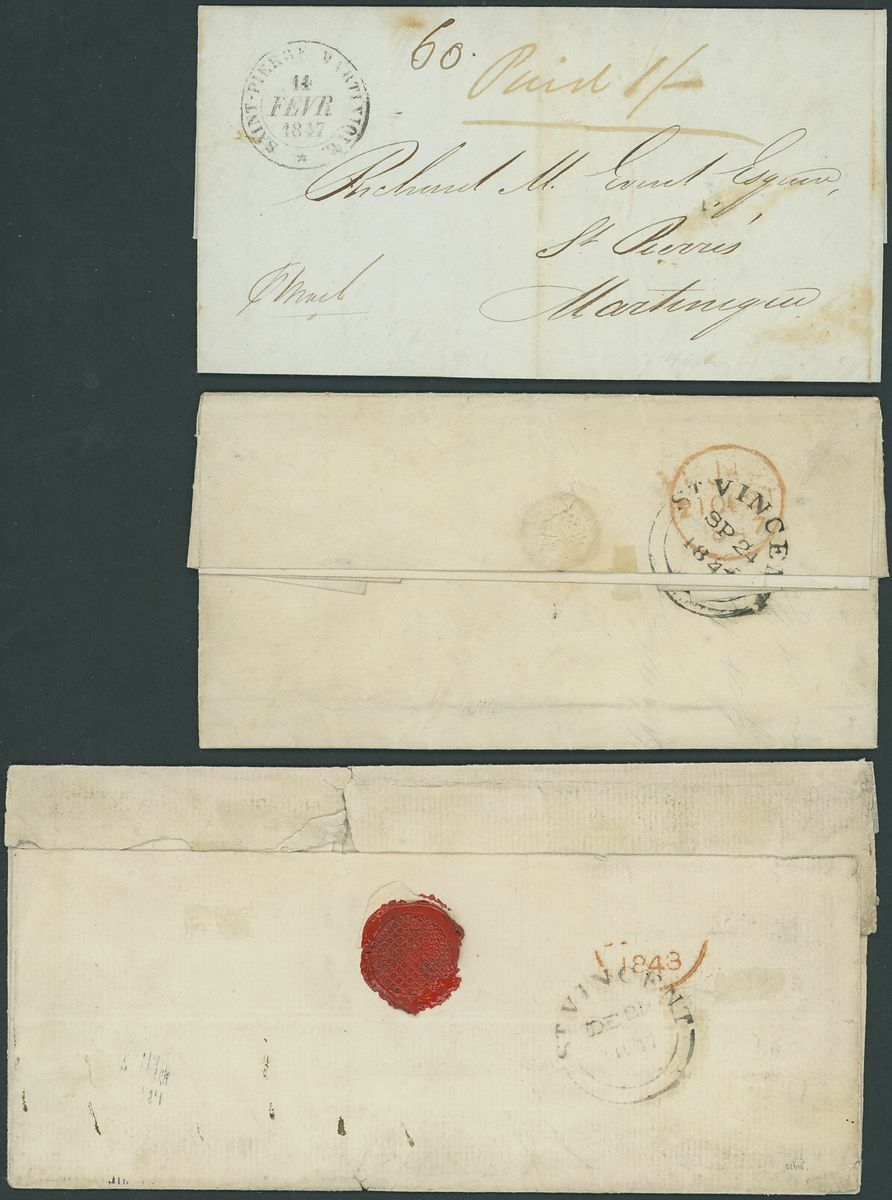 SAINT-PIERRE MARTINIQUE
14
FEVR
1847
60.
Paid 1/-
Richard M. Esquire,
St. Pierres
Martinique
ST VINCEN
SP 24
184
1843
ST VINCENT
DE